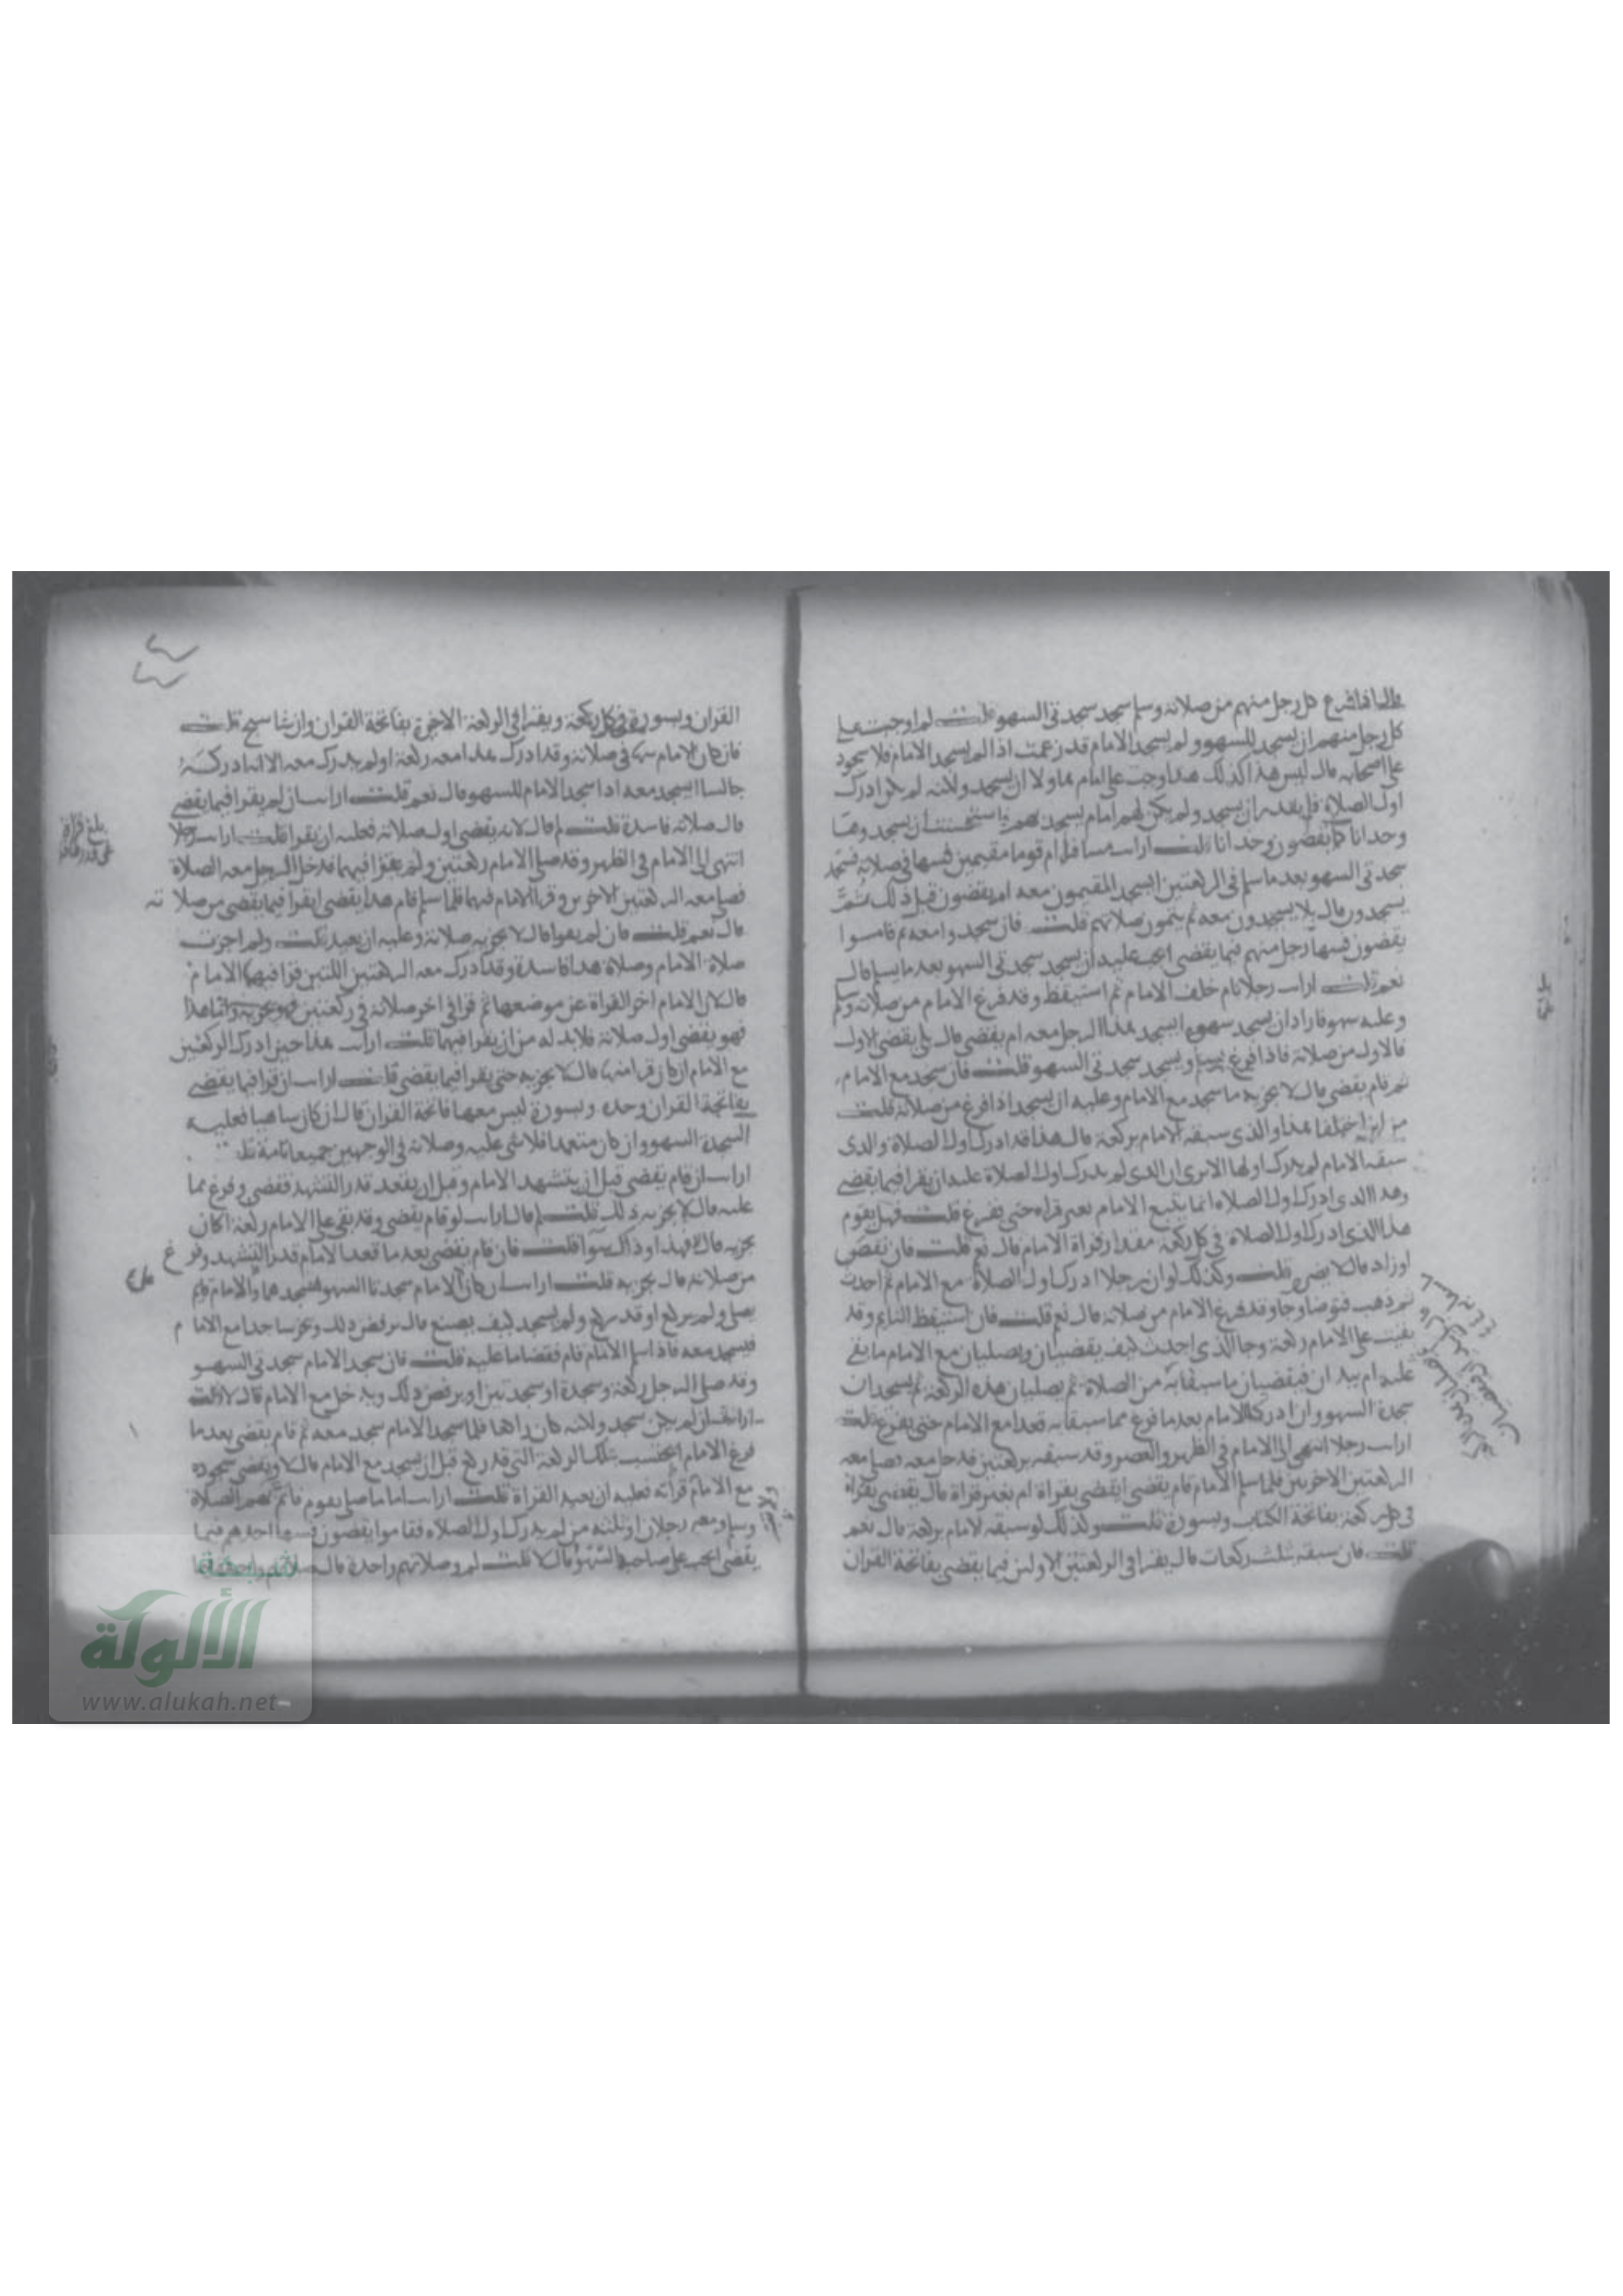 قال اذا فرغ كل رجل منهم من صلاته وسلم سجد سجدتي السهو قلت لم اوجبت على
كل رجل منهم ان يسجد للسهو ولم يسجد الامام قد زعمت اذا لم يسجد الامام فلا سجود
على اصحابه قال ليس هذا كذلك هذا وجب على امام هاولا ان يسجد ولانه لم يكن ادرك
اول الصلاة فلم يقدر ان يسجد ولم يكن لهم امام يسجد بهم فاستحسنت ان يسجد وهـا
وحدانا كما يقضون وحدانا قلت ارايت مسافرا ام قوما مقيمين فسها في صلاته فسجد
سجدتي السهو بعد ما سلم في الركعتين ايسجد المقيمون معه ام يقضون قبل ذلك ثم
يسجدون قال بل يسجدون معه ثم يتمون صلاتهم قلت فان سجدوا معه ثم قاموا
يقضون فسها رجل منهم فيما يقضى ايجب عليه ان يسجد سجدتي السهو بعد ما يسلم قال
نعم قلت ارايت رجلا نام خلف الامام ثم استيقظ وقد فرغ الامام من صلاته ولم
وعليه سهو فاراد ان يسجد سهوه ايسجد هذا الرجل معه ام يقضى قال بل يقضى الاول
فالاول من صلاته فاذا فرغ سلم ويسجد سجدتي السهو قلت فان سجد مع الامام
ثم قام يقضى قال لا يجزيه ما سجد مع الامام وعليه ان يسجد اذا فرغ من صلاته قلت
من اين اختلفا هذا والذي سبقه الامام بركعة قال هذا قد ادرك اول الصلاة والذى
سبقه الامام لم يدرك اولها الا ترى ان الذى لم يدرك اول الصلاة عليه ان يقرا فيما يقضى
وهذا الذى ادرك اول الصلاة انما يتبع الامام بغير قراة حتى يفرغ قلت فهل يقوم
هذا الذى ادرك اول الصلاة في كل ركعة مقدار قراة الامام قال نعم قلت فان نقص
او زاد قال لا يضره قلت وكذلك لو ان رجلا ادرك اول الصلاة مع الامام ثم احدث
ثم ذهب فتوضا وجا وقد فرغ الامام من صلاته قال نعم قلت فان استيقظ النايم وقد
بقيت على الامام ركعة وجا الذى احدث كيف يقضيان ويصليان مع الامام ما بقى
عليه ام يبدان فيقضيان ما سبقا به من الصلاة ثم يصليان هذه الركعة ثم يسجدان
سجدة السهو وان ادركا الامام بعد ما فرغ مما سبقا به قعدا مع الامام حتى يفرغ قلت
ارايت رجلا انتهى الى الامام في الظهر والعصر وقد سبقه بركعتين فدخل معه فصلى معه
الركعتين الاخريين فلما سلم الامام قام يقضى ايقضى بقراة ام بغير قراة قال يقضى بقراة
في كل ركعة بفاتحة الكتاب وبسورة قلت وكذلك لو سبقه الامام بركعة قال نعم
قلت فان سبقه بثلث ركعات قال يقرا في الركعتين الاولين فيما يقضى بفاتحة القران
القران وبسورة في كل ركعة ويقرا في الركعة الاخرة بفاتحة القران وان شا سبح قلت
فان كان الامام سها في صلاته وقد ادرك هذا معه ركعة او لم يدرك معه الا انه ادركه
جالسا ايسجد معه اذا سجد الامام للسهو قال نعم قلت ارايت ان لم يقرا فيما يقضى
قال صلاته فاسدة قلت لم قال لانه يقضى اول صلاته فعليه ان يقرا قلت ارايت رجلا
انتهى الى الامام في الظهر وقد صلى الامام ركعتين ولم يقرا فيهما فدخل الرجل معه الصلاة
فصلى معه الركعتين الاخريين وقرا الامام فيهما فلما سلم قام هذا يقضى ايقرا فيما يقضى من صلاته
قال نعم قلت فان لم يقرا قال لا يجزيه صلاته وعليه ان يعيد قلت ولم اجزت
صلاة الامام وصلاة هذا فاسدة وقد ادرك معه الركعتين اللتين قرا فيهما الامام
قال لان الامام اخر القراة عن موضعها ثم قرا في اخر صلاته في ركعتين فهو يجزيه واما هذا
فهو يقضى اول صلاته فلا بد له من ان يقرا فيهما قلت ارايت هذا حين ادرك الركعتين
مع الامام ان كان قرا منها قال لا يجزيه حتى يقرا فيما يقضى قلت ارايت ان قرا فيما يقضى
بفاتحة القران وحده وبسورة ليس معها فاتحة القران قال ان كان ساهيا فعليه
السجدة السهو وان كان متعمدا فلا شى عليه وصلاته في الوجهين جميعا تامة قلت
ارايت ان قام يقضى قبل ان يتشهد الامام وقبل ان يقعد قدر التشهد فقضى وفرغ مما
عليه قال لا يجزيه ذلك قلت لم قال ارايت لو قام يقضى وقد بقى على الامام ركعة اكان
يجزيه قال لا فهذا وذاك سوا قلت فان قام يقضى بعد ما قعد الامام قدر التشهد وفرغ
من صلاته قال يجزيه قلت ارايت ان كان الامام سجدتا السهو فسجدهما والامام قايم
يصلى ولم يركع او قد ركع ولم يسجد كيف يصنع قال يرفض ذلك ويخر ساجدا مع الامام
فيسجد معه فاذا سلم الامام قام فقضا ما عليه قلت فان سجد الامام سجدتي السهو
وقد صلى الرجل ركعة وسجدة او سجدتين او يرفض ذلك ويدخل مع الامام قال لا قلت
ارايت ان لم يكن سجد ولكنه كان راكعا فلما سجد الامام سجد معه ثم قام يقضى بعد ما
فرغ الامام ايحتسب بتلك الركعة التي قد ركع قبل ان يسجد مع الامام قال لا وينقض سجوده
مع الامام قراته فعليه ان يعيد القراة قلت ارايت اماما صلى بقوم فاتم بهم الصلاة
وسلم ومعه رجلان او ثلثة من لم يدرك اول الصلاة فقاموا يقضون فسها احدهم فيما
يقضى ايجب على صاحبه السهو قال لا قلت لم وصلاتهم واحدة قال
بلغ قراة
شبكة
الألوكة
www.alukah.net